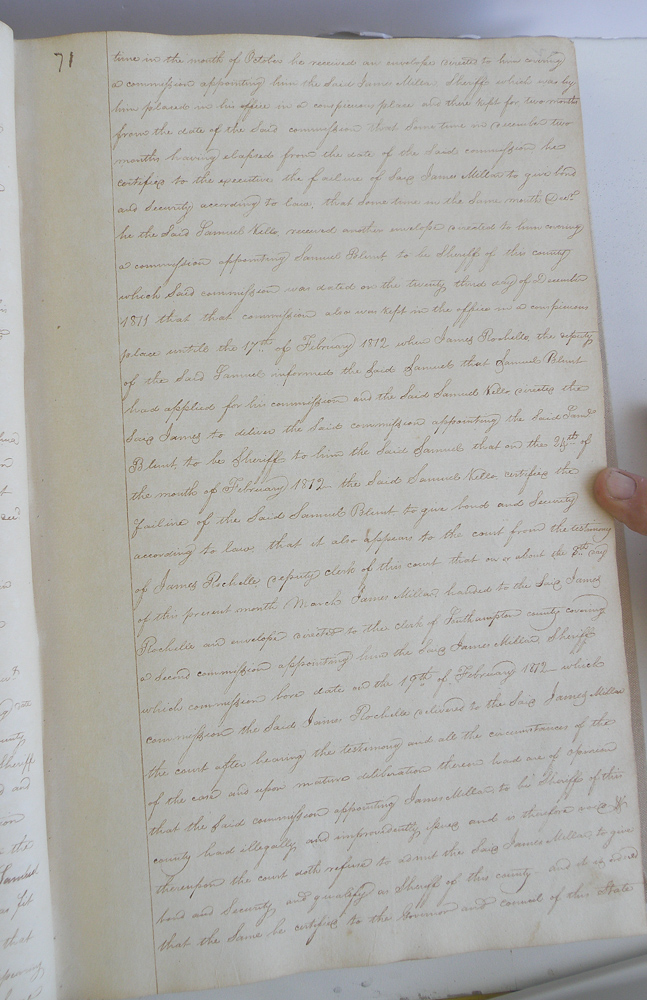 71
time in the month of October he received an envelope directed to him covering
a commission appointing him the said James Millar Sheriff which was by
him placed in his office in a conspicuous place and there kept for two months
from the date of the said commission that some time in december two
months having elapsed from the date of the said commission he
certified to the executive the failure of said James Millar to give bond
and security according to law, that some time in the same month
he the said Samuel Kello received another envelope directed to him covering
a commission appointing Samuel Blunt to be Sheriff of this county
which said commission was dated on the twenty third day of December
1811 that that commission also was kept in the office in a conspicuous
place untill the 17th of February 1812 when James Rochelle the deputy
of the said Samuel informed the said Samuel that Samuel Blunt
had applied for his commission and the said Samuel Kello directed the
said James to deliver the said commission appointing the said Saml
Blunt, to be Sheriff to him the said Samuel that on the of
the month of February 1812 the said Samuel Kello, certified the
failure of the said Samuel Blunt to give bond and security
according to law that it also appears to the court from the testimony
of James Rochelle deputy clerk of this court that on or about the day
of this present month March James Millar handed to the said James
Rochelle an envelope directed to the clerk of Southampton county covering
a second commission appointing him the said James Millar Sheriff
which commission bore date on the 19th of February 1812 which
commission the said James Rochelle delivered to the said James Millar
the court after hearing the testimony and all the circumstances of the
of the case and upon mature deliberation thereon had are of opinion
that the said commission appointing James Millar to be Sheriff of this
county had illegally and improvidently issued and is therefore void &
thereupon the court doth refuse to admit the said James Millar to give
bond and security and qualify as Sheriff of this county and it is ordered
that the same be certified to the Governor and council of this State